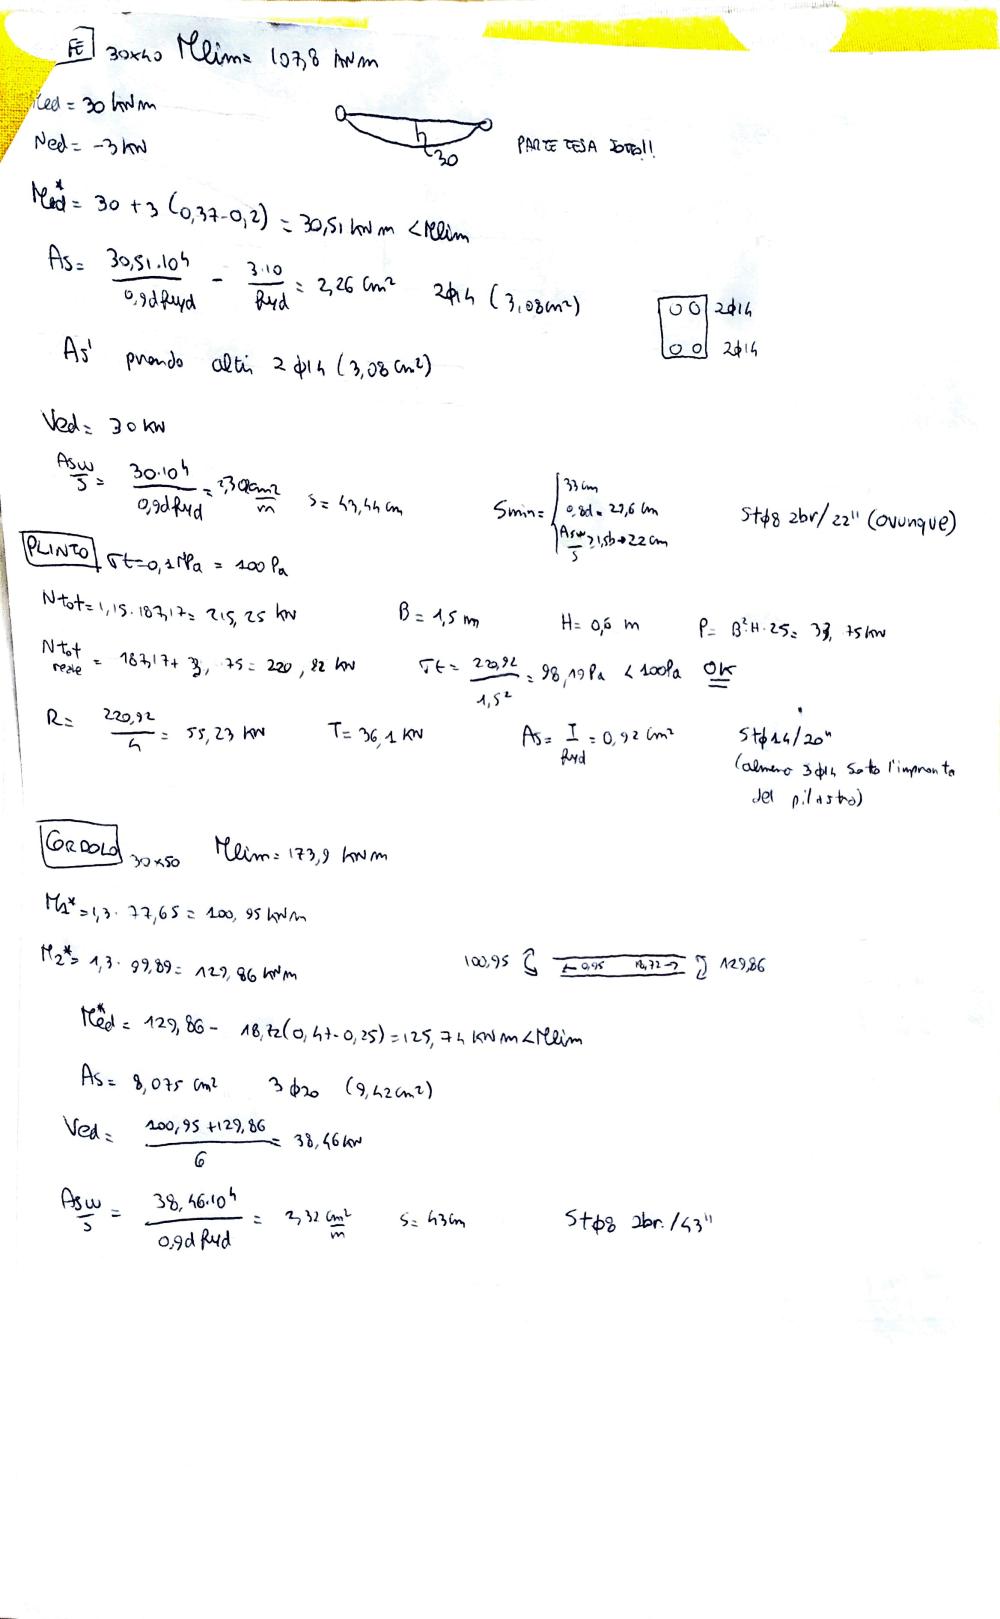 FE 30x40 Mlim= 107,8 kNm
Med = 30 kNm
Ned = -3 kN
30
PARTE TESA SOTTO!!
Med* = 30 + 3 (0,37-0,2) = 30,51 kNm < Mlim
As = 30,51·10⁴ / 0,9d fyd - 3·10 / fyd = 2,26 cm² 2ϕ14 (3,08cm²)
2ϕ14
2ϕ14
As' prendo altri 2ϕ14 (3,08 cm²)
Ved = 30 kN
Asw/s = 30·10⁴ / 0,9d fyd = 2,30 cm²/m s = 43,44 cm
Smin = 33 cm
0,8d = 29,6 cm
Asw/s ≥ 1,5b → 22 cm
Stϕ8 2br/22" (ovunque)
PLINTO σt = 0,1 MPa = 100 Pa
Ntot = 1,15·187,17 = 215,25 kN B = 1,5 m H = 0,6 m P = B²·H·25 = 33,75 kN
Ntot reale = 187,17 + 33,75 = 220,92 kN σt = 220,92 / 1,5² = 98,19 Pa < 100 Pa OK
R = 220,92 / 4 = 55,23 kN T = 36,1 kN As = T / fyd = 0,92 cm² Stϕ14/20"
(almeno 3ϕ14 sotto l'impronta
del pilastro)
CORDOLO 30x50 Mlim = 173,9 kNm
M1* = 1,3·77,65 = 100,95 kNm
M2* = 1,3·99,89 = 129,86 kNm
100,95 ← 0,95 18,72 → 129,86
Med* = 129,86 - 18,72(0,47-0,25) = 125,74 kNm < Mlim
As = 8,075 cm² 3ϕ20 (9,42cm²)
Ved = 100,95 + 129,86 / 6 = 38,46 kN
Asw/s = 38,46·10⁴ / 0,9d fyd = 2,32 cm²/m s = 43cm Stϕ8 2br./43"